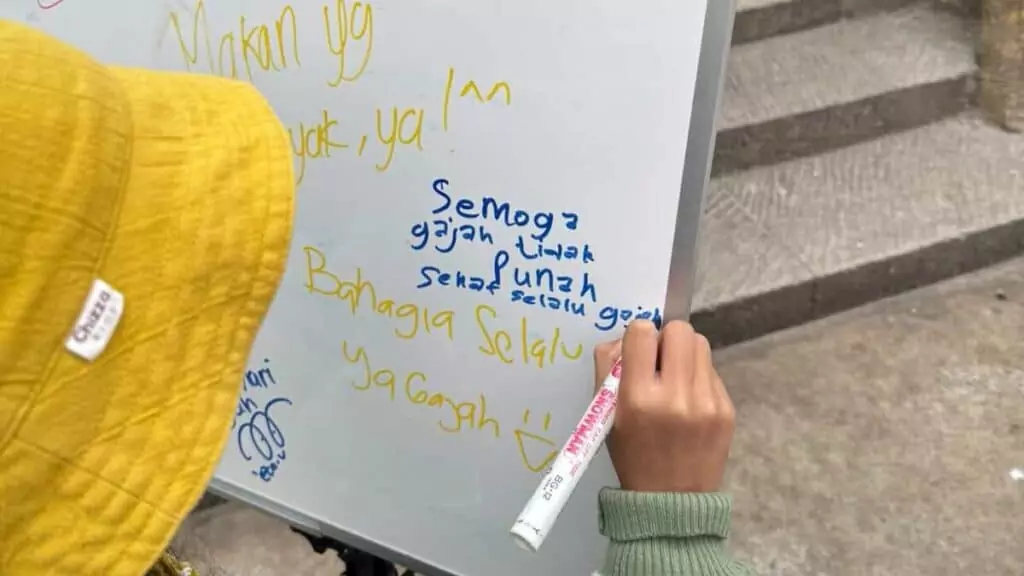 Makan yg
yak, ya! ^^
Semoga
gajah tidak
Punah
Sehat selalu gajah
Bahagia Selalu
Ya Gajah
Chizzo
SNOWMAN
BG-12